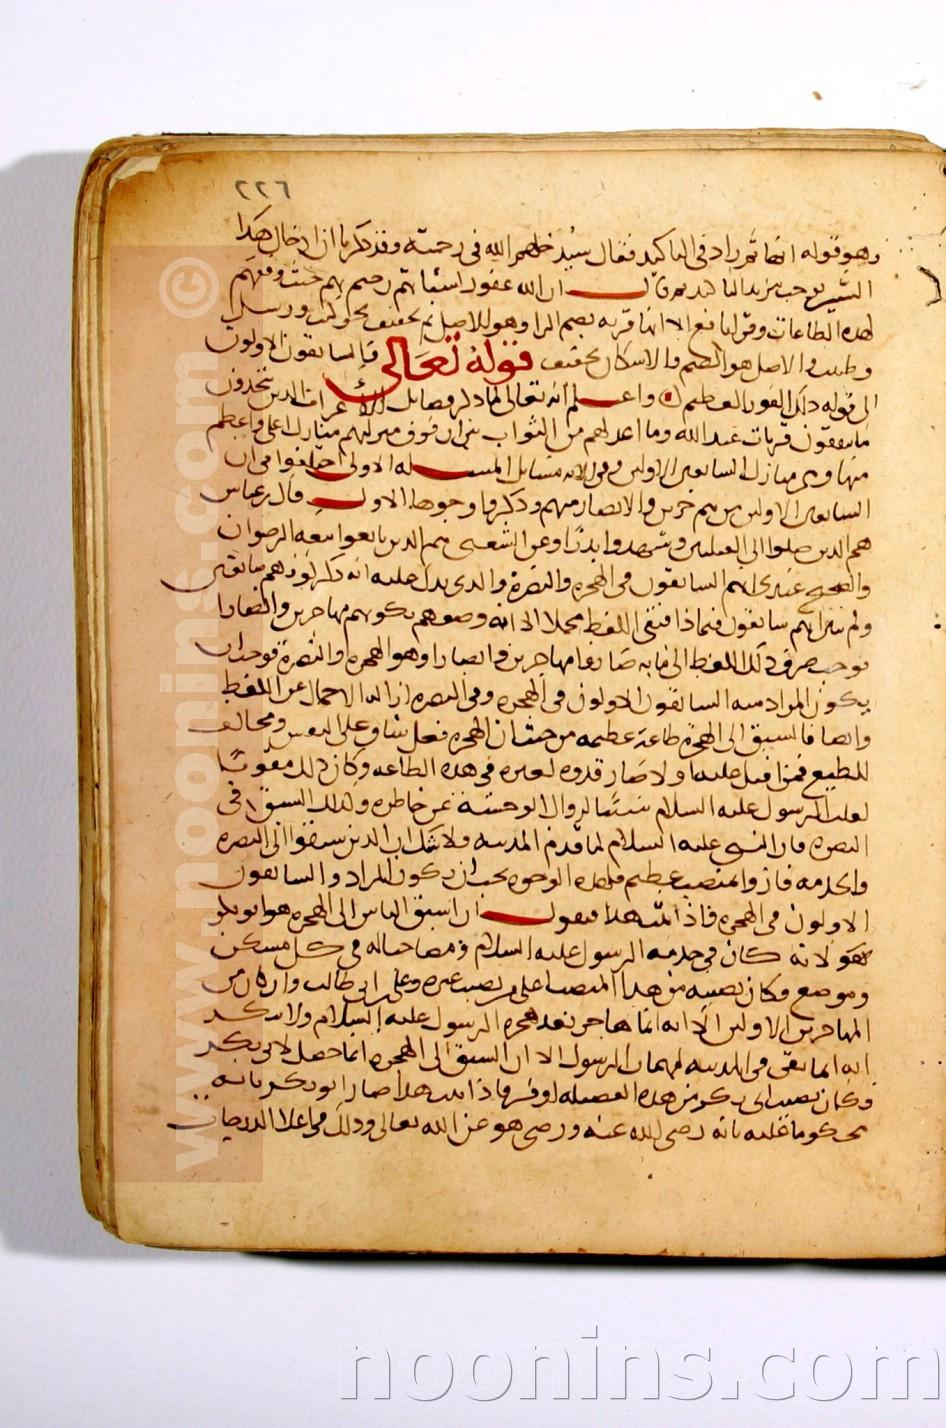 ٢٢٦
وهو قوله انها ثم زاد في التاكيد فقال سيدخلهم الله في رحمته وقد ذكرنا ان ادخال هكذا
السين يوجب مزيد التاكيد ثم قال ان الله غفور لسيئاتهم رحيم بهم حيث وفقهم
لهذه الطاعات وقرا نافع الا انها قربة بضم الرا وهو الاصل ثم خففت نحو كتب ورسل
وطنب والاصل هو الضم والاسكان تخفيف قوله تعالى والسابقون الاولون
الى قوله ذلك الفوز العظيم واعلم انه تعالى لما ذكر فضائل الاعراب الذين يتخذون
ما ينفقون قربات عند الله وما اعد لهم من الثواب بين ان فوق منزلتهم منازل اعلى واعظم
منها وهي منازل السابقين الاولين وفي الاية مسائل المسئلة الاولى اختلفوا في ان
السابقين الاولين من هم من المهاجرين والانصار منهم وذكروا وجوها الاول قال ابن عباس
هم الذين صلوا الى القبلتين وشهدوا بدرا وعن الشعبي هم الذين بايعوا بيعة الرضوان
والصحيح عندي انهم السابقون في الهجرة والنصرة والذي يدل عليه انه ذكر كونهم سابقين
ولم يبين انهم سابقون فيما ذا فبقي اللفظ مجملا الا انه وصفهم بكونهم مهاجرين وانصارا
فوجب صرف ذلك اللفظ الى ما به صاروا مهاجرين وانصارا وهو الهجرة والنصرة فوجب ان
يكون المراد منه السابقون الاولون في الهجرة وفي النصرة ازالة للاجمال عن اللفظ
وايضا فالسبق الى الهجرة طاعة عظيمة من حيث ان الهجرة فعل شاق على النفس ومخالف
للطبع فمن اقبل عليه اولا صار قدوة لغيره في هذه الطاعة وكان ذلك مقويا
لقلب الرسول عليه السلام وسببا لزوال الوحشة عن خاطره وكذلك السبق في
النصرة فان النبي عليه السلام لما قدم المدينة فلا شك ان الذين سبقوا الى النصرة
والخدمة فازوا بمنصب عظيم فلهذه الوجوه يجب ان يكون المراد والسابقون
الاولون في الهجرة فاذا ثبت هذا فنقول ان اسبق الناس الى الهجرة هو ابو بكر
لانه كان في خدمة الرسول عليه السلام ومصاحبا له في كل مسكن
وموضع وكان نصيبه من هذا المنصب اعلى من نصيب غيره وعلي بن ابي طالب وان كان من
المهاجرين الاولين الا انه انما هاجر بعد هجرة الرسول عليه السلام ولا شك
انه انما بقي في المدينة لمهمات الرسول الا ان السبق الى الهجرة انما حصل لابي بكر
وكان نصيب ابي بكر من هذه الفضيلة اوفر فاذا ثبت هذا صار ابو بكر بانه
محكوما عليه بانه رضي الله عنه ورضي هو عن الله تعالى وذلك في اعلا الدرجات
www.noonins.com ©
noonins.com